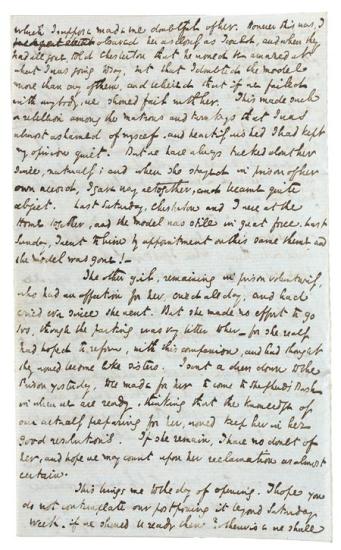 which I suppose made me doubtful of her. However this was, I
observed her as closely as I could, and when they
had all gone, told Chesterton that he would be amazed at
what I was going to say, but that I doubted the model
more than any of them, and believed that if we failed
with anybody, we should fail with her. This made such
a rebellion among the matrons and turnkeys that I was
almost ashamed of myself, and heartily wished I had kept
my opinion quiet. But we have always talked about her
since, naturally; and when she stayed in prison of her
own accord, I gave way altogether, and became quite
abject. Last Saturday, Chesterton and I were at the
Home together, and the model was still in great force. Last
Sunday, I went to him by appointment on this same theme and
the model was gone!—
The other girl, remaining in prison voluntarily,
who had an affection for her, one day, and had
cried ever since she went. But she made no effort to go
too, though the parting was very bitter to her—for she really
had hoped to reform, with this companion, and had thought
they would become like sisters. I sent a dress down to the
Prison yesterday, to be made for her to come to Shepherds Bush
in when we are ready, thinking that the knowledge of
our actually preparing for her, would keep her in her
good resolutions. If she remain, I have no doubt of
her, and hope we may count upon her reclamation as almost
certain.
This brings me to the day of opening. I hope you
do not contemplate our postponing it beyond Saturday
week, if we should be ready then? Otherwise we shall